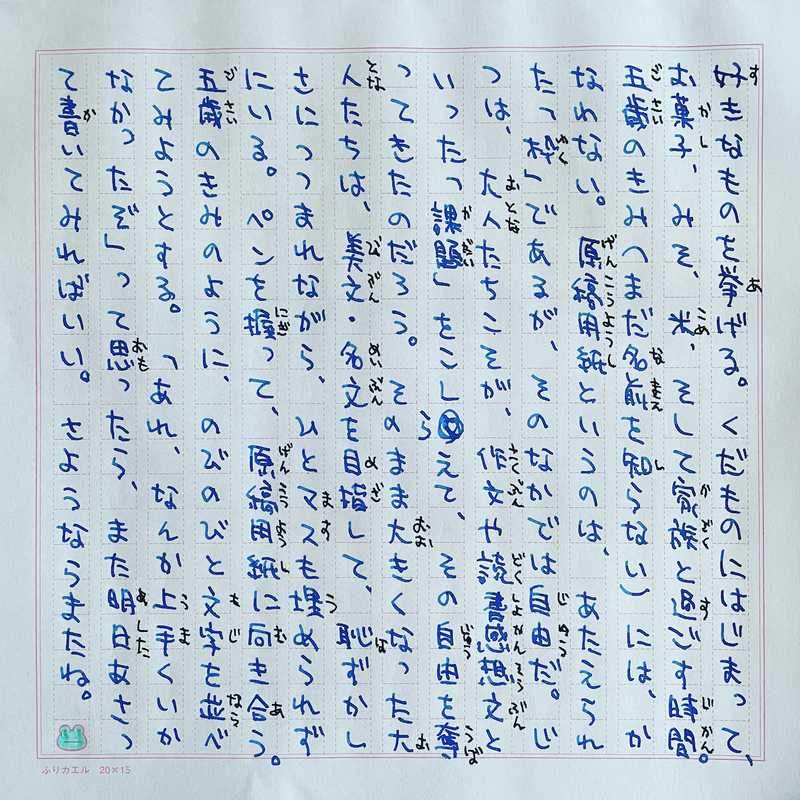 好きなものを挙げる。くだものにはじまって、
お菓子、みそ、米、そして家族と過ごす時間。
五歳のきみ(まだ名前を知らない)には、か
なわない。原稿用紙というのは、あたえられ
た「枠」であるが、そのなかでは自由だ。じ
つは、大人たちこそが、作文や読書感想文と
いった「課題」をこしらえて、その自由を奪
ってきたのだろう。そのまま大きくなった大
人たちは、美文・名文を目指して、恥ずかし
さにつつまれながら、ひとマスも埋められず
にいる。ペンを握って、原稿用紙に向き合う。
五歳のきみのように、のびのびと文字を並べ
てみようとする。「あれ、なんか上手くいか
なかったぞ」って思ったら、また明日あさっ
て書いてみればいい。さようならまたね。
ふりカエル 20×15